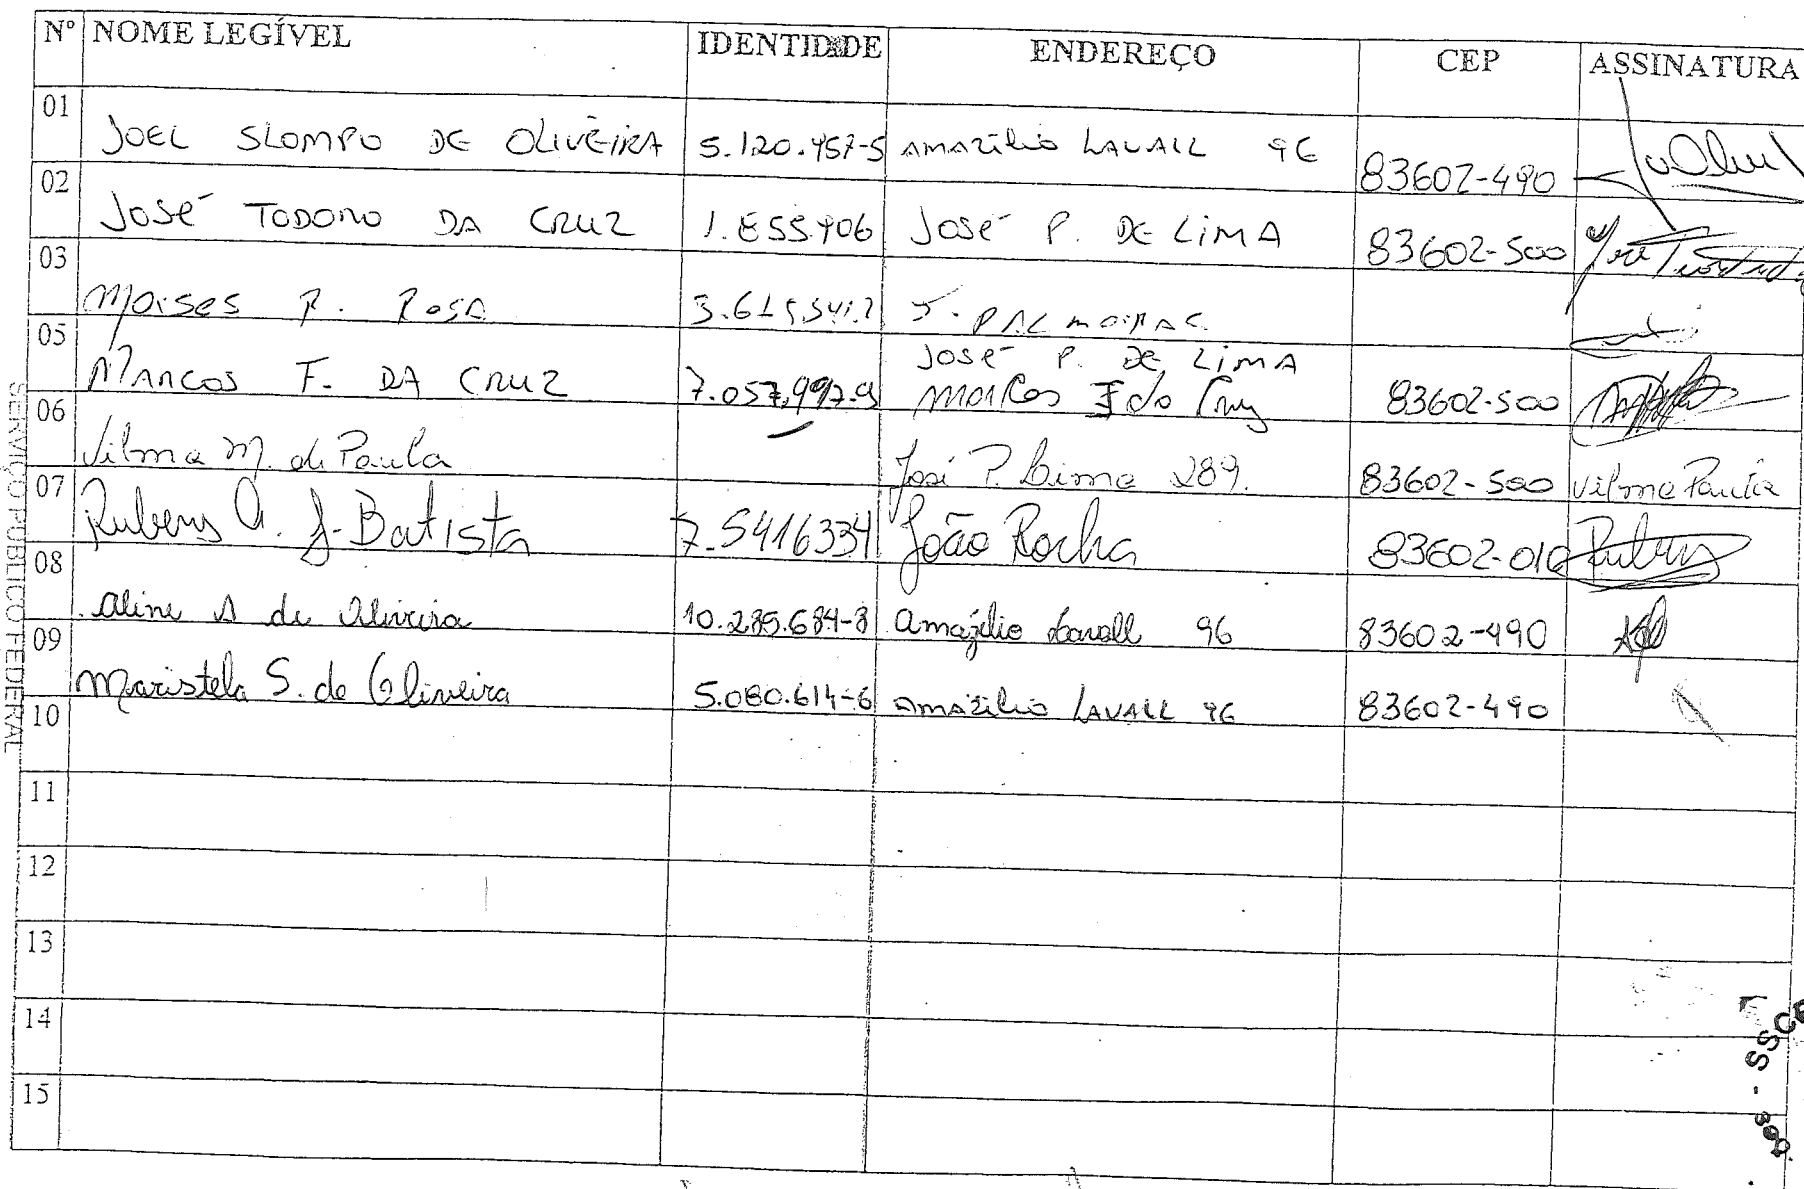 Nº NOME LEGÍVEL IDENTIDADE ENDEREÇO CEP ASSINATURA
01 JOEL SLOMPO DE OLIVEIRA 5.120.457-5 AMAZÍLIO LAVALL 96 83602-490
02 JOSÉ TODORO DA CRUZ 1.855906 JOSÉ P. DE LIMA 83602-500
03 Moises R. ROSA
05 MARCOS F. DA CRUZ 7.057.997.9 JOSÉ P. DE LIMA
Marcos F da Cruz 83602-500
06 Vilma M. de Paula José P. Lima 289. 83602-500 Vilma Paula
07 Rubens A. J. Batista 7.5416334 João Rocha 83602-010 Rubens
08 Aline S de Oliveira 10.285.684-8 Amazílio Lavall 96 83602-490
09 Maristela S. de Oliveira 5.080.614-6 AMAZÍLIO LAVALL 96 83602-490
10
11
12
13
14
15
SERVIÇO PÚBLICO FEDERAL